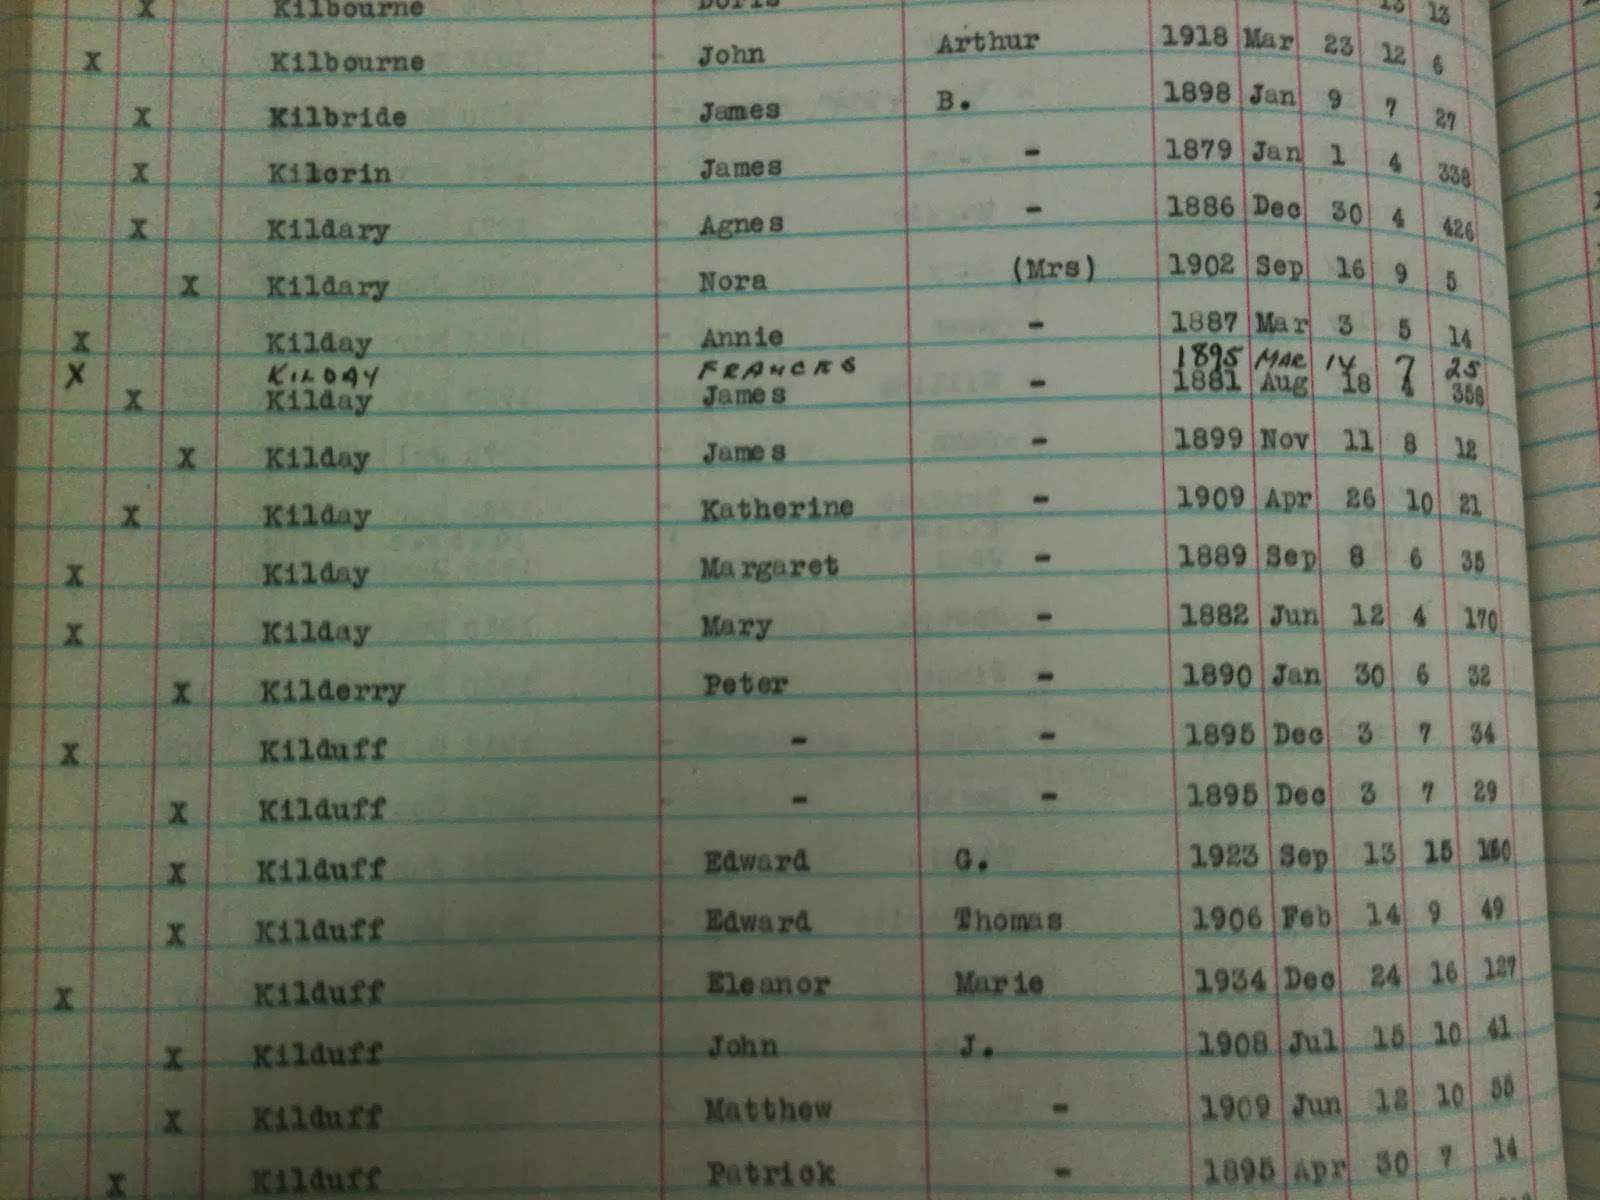 X Kilbourne Doris 13 13
X Kilbourne John Arthur 1918 Mar 23 12 6
X Kilbride James B. 1898 Jan 9 7 27
X Kilcrin James - 1879 Jan 1 4 338
X Kildary Agnes - 1886 Dec 30 4 426
X Kildary Nora (Mrs) 1902 Sep 16 9 5
X Kilday Annie - 1887 Mar 3 5 14
X KILDAY FRANCES 1895 MAR 14 7 25
X Kilday James - 1881 Aug 18 4 358
X Kilday James - 1899 Nov 11 8 12
X Kilday Katherine - 1909 Apr 26 10 21
X Kilday Margaret - 1889 Sep 8 6 35
X Kilday Mary - 1882 Jun 12 4 170
X Kilderry Peter - 1890 Jan 30 6 32
X Kilduff - - 1895 Dec 3 7 34
X Kilduff - - 1895 Dec 3 7 29
X Kilduff Edward G. 1923 Sep 13 15 160
X Kilduff Edward Thomas 1906 Feb 14 9 49
X Kilduff Eleanor Marie 1934 Dec 24 16 127
X Kilduff John J. 1908 Jul 15 10 41
X Kilduff Matthew - 1909 Jun 12 10 55
X Kilduff Patrick - 1895 Apr 30 7 14